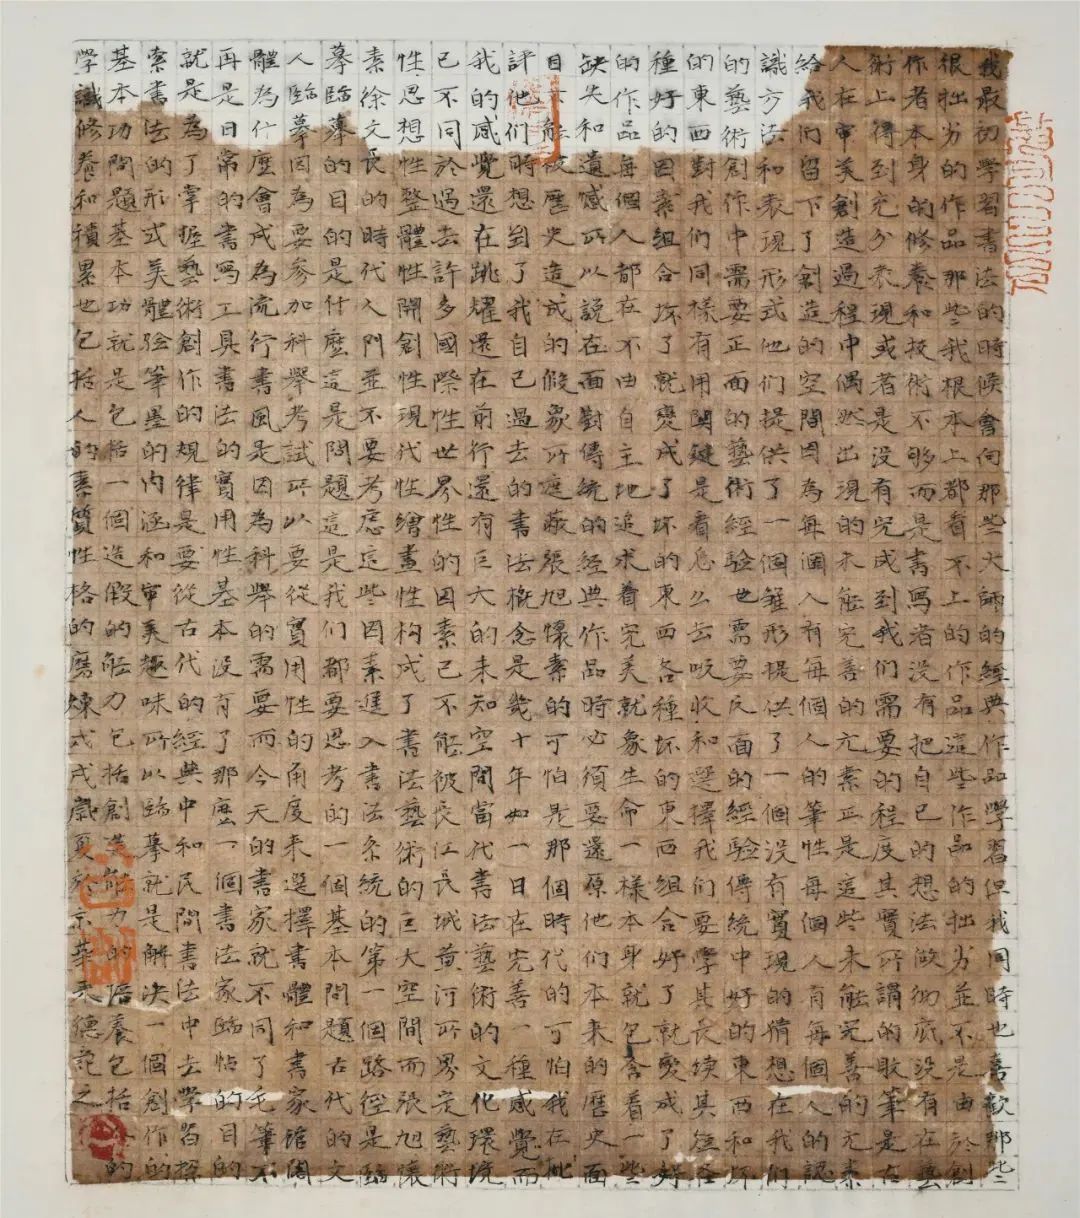 我最初學習書法的時候會向那些大師的經典作品學習但我同時也喜歡那些
很拙劣的作品那些我根本上都看不上的作品這些作品的拙劣並不是由於創
作者本身的修養和技術不够而是書寫者没有把自己的想法做彻底没有在藝
術上得到充分表現或者是没有完成到我们需要的程度其實所謂的敗筆是古
人在审美創造過程中偶然出現的未能完善的元素正是這些未能完善的元素
給我们留下了創造的空間因為每個人有每個人的筆性每個人有每個人的認
識方法和表現形式他们提供了一個雏形提供了一個没有實現的猜想在我们
的藝術創作中需要正面的藝術經驗也需要反面的經驗傳統中好的東西和坏
的東西對我们同樣有用関鍵是看怎么去吸收和選擇我们要學其長续其
種好的因素組合坏了就變成了坏的東西各種坏的東西組合好了就變成了好
的作品每個人都在不由自主地追求着完美就象生命一樣本身就包含着一些
缺失和遺感所以説在面對傳統的經典作品時必須要還原他们本来的歷史面
目能被歷史造成的假象所遮蔽張旭懷素的可怕是那個時代的可怕我在批
評他们時想到了我自己過去的書法概念是幾十年如一日在完善一種感覺而
我的感覺還在跳耀還在前行還有巨大的未知空間當代書法藝術的文化環境
已不同於過去許多國際性世界性的因素已不能被長江長城黄河所界定藝術
性思想性整體性開創性現代性繪畫性构成了書法藝術的巨大空間而張旭懷
素徐文長的時代人们並不要考慮這些因素進入書法系統的第一個路徑是臨
摹臨摹的目的是什麼這是問題這是我们都要思考的一個基本問題古代的文
人臨摹因為要參加科舉考試所以要從實用性的角度来選擇書體和書家館閣
體為什麼會成為流行書風是因為科舉的需要而今天的書家就不同了毛筆不
再是日常的書寫工具書法的實用性基本没有了那麼一個書法家臨帖的目的
就是為了掌握藝術創作的規律是要從古代的經典中和民間書法中去學習探
索書法的形式美體验筆墨的内涵和审美趣味所以臨摹就是解决一個創作的
基本功問題基本功就是包括一個造假的能力包括創造能力的培養包括的
學識修養和積累也包括人的素質性格的磨煉戊歲夏於京華德記之